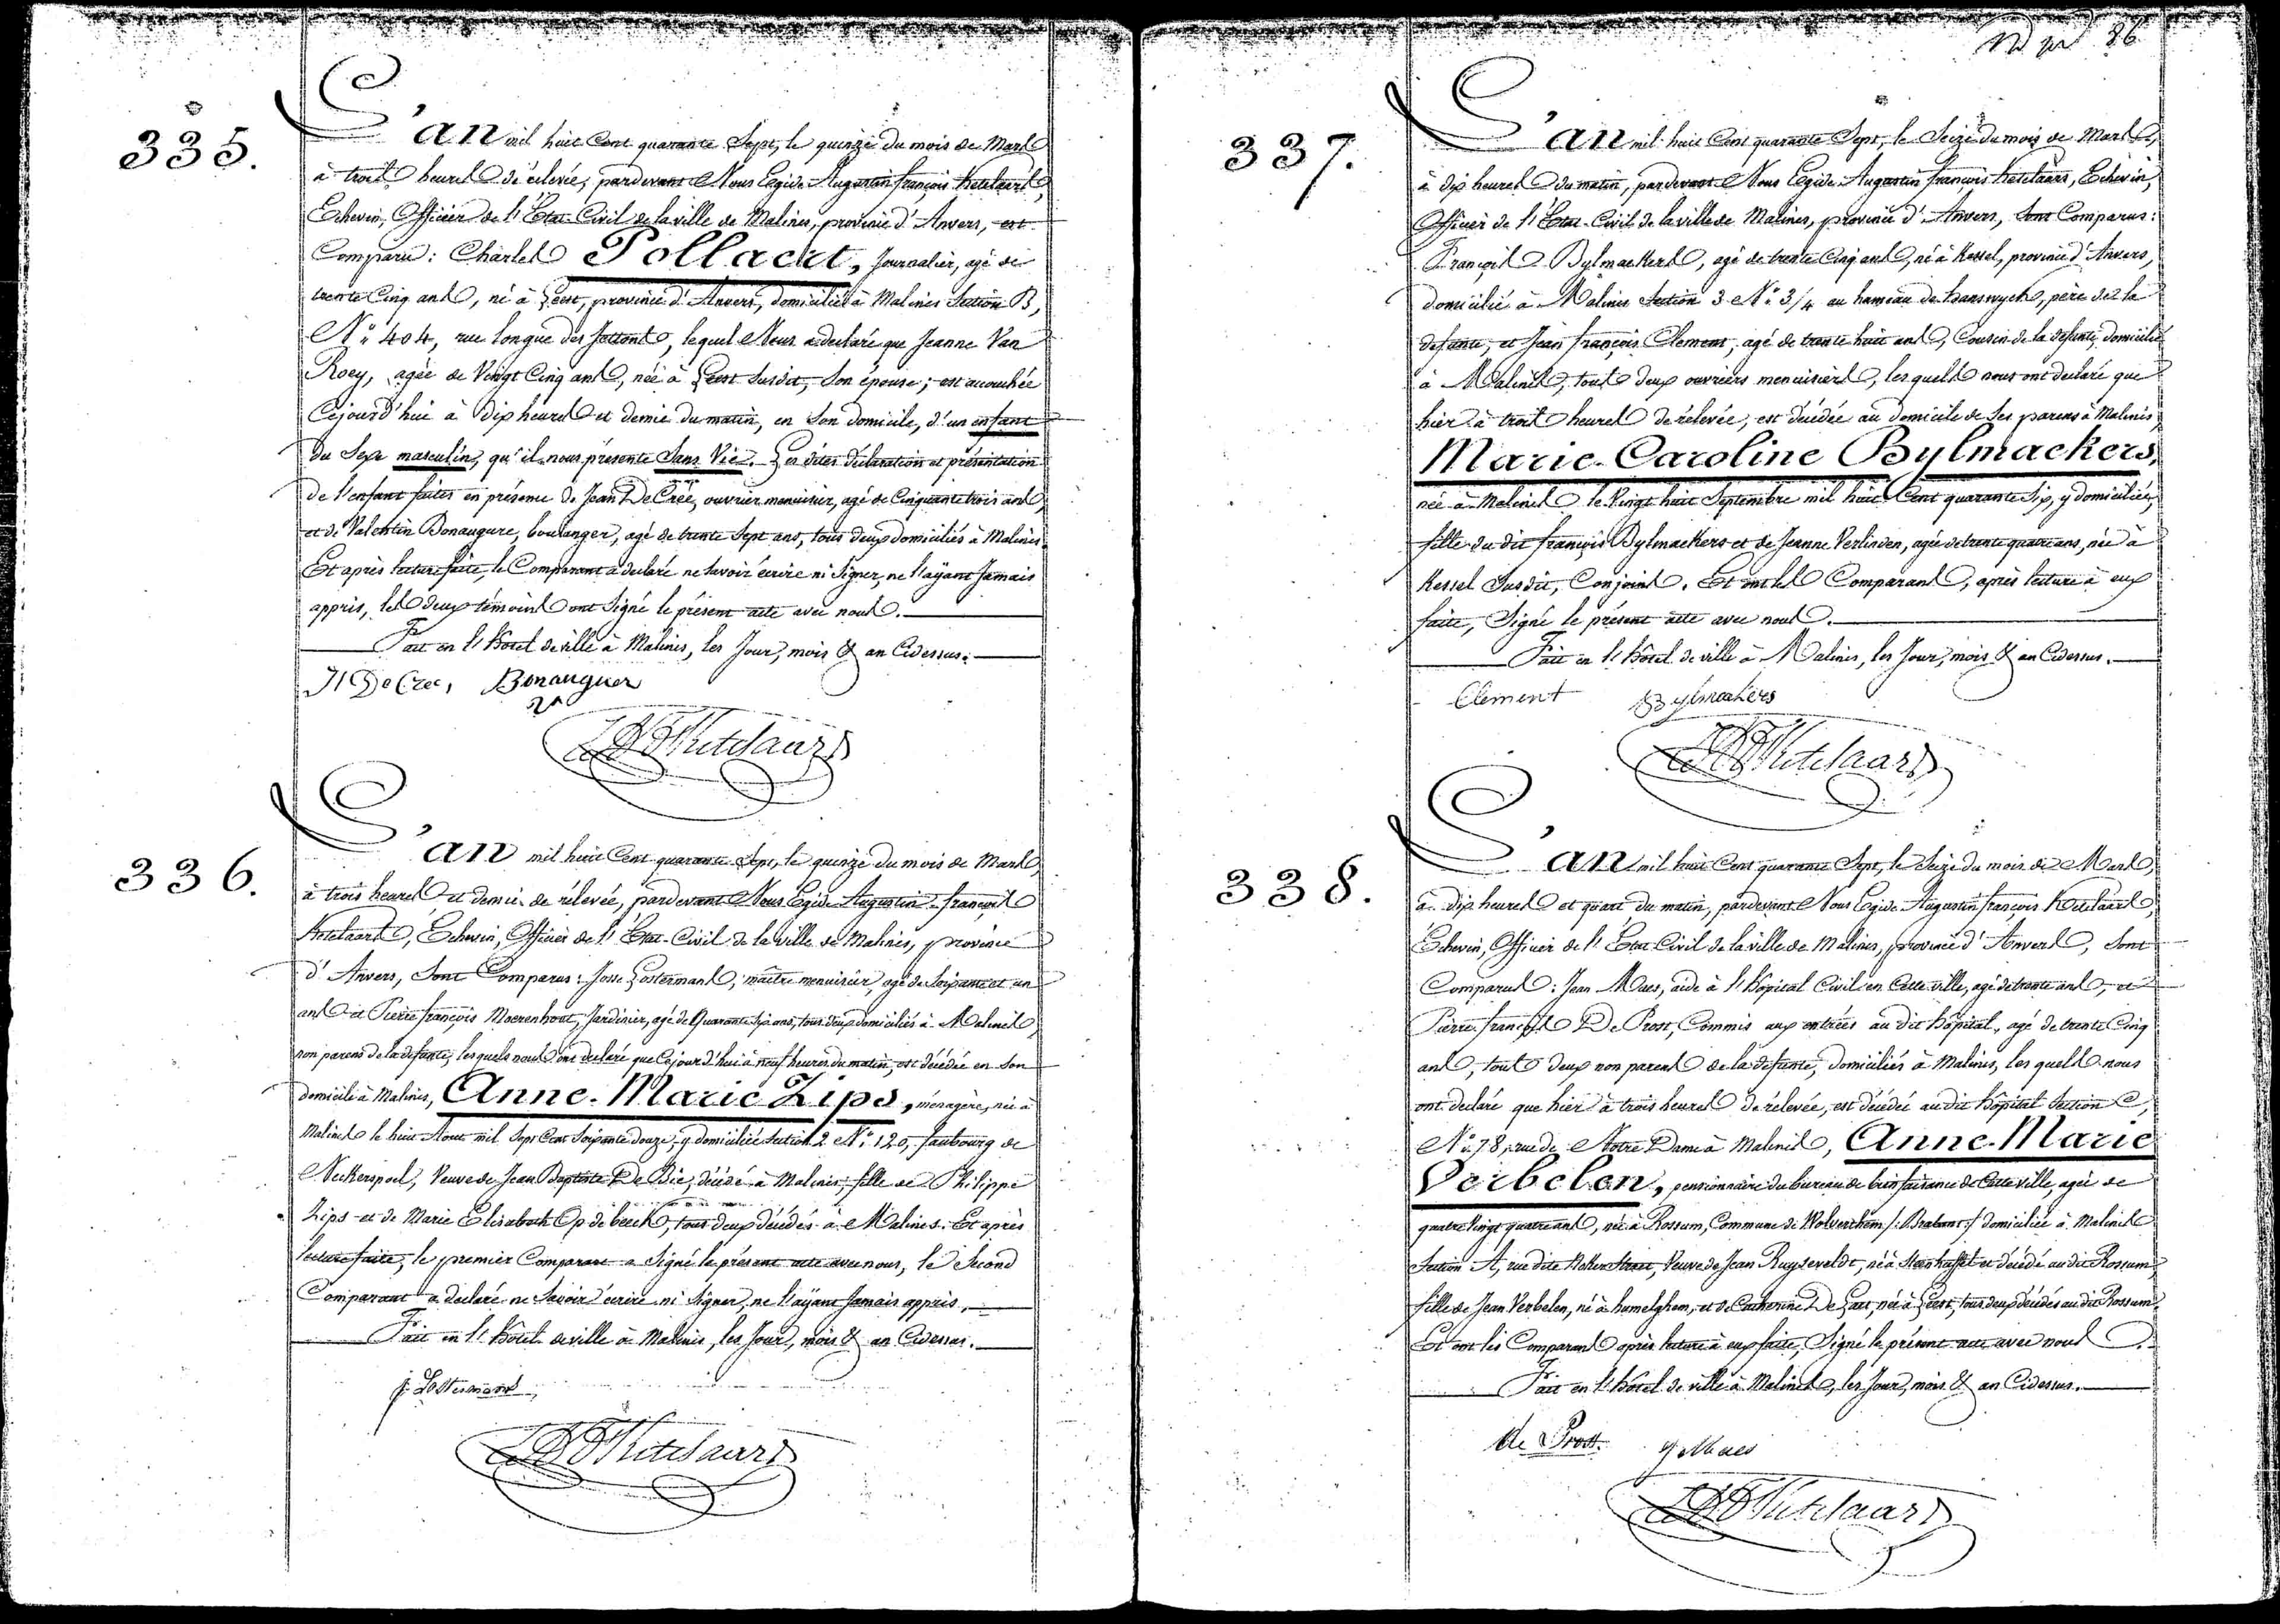 335.
L'an mil huit Cent quarante Sept, le quinze du mois de Mars
à trois heures de rélevée, pardevant Nous Egide Augustin françois Ketelaars,
Echevin, Officier de l'Etat-Civil de la ville de Malines, province d'Anvers, est
Comparu: Charles Pollaert, Journalier, agé de
trente Cinq ans, né à Leest, province d'Anvers, domicilié à Malines Section B,
N° 404, rue longue des, lequel Nous a declaré que Jeanne Van
Roey, agée de Vingt Cinq ans, née à Leest Susdit, Son épouse; est accouchée
Cejourd'hui à dix heures et demie du matin, en Son domicile, d'un enfant
du Sexe masculin, qu'il nous présente Sans Vie. Les dites déclaration et présentation
de l'enfant faites en présence de Jean De Crée, ouvrier menuisier, agé de Cinquante trois ans,
et de Valentin Bonaugure, boulanger, agé de trente Sept ans, tous deux domiciliés à Malines.
Et après lecture faite, le Comparant a declaré ne Savoir écrire ni Signer, ne l'ayant Jamais
appris, les deux témoins ont Signé le présent acte avec nous.
Fait en l'hôtel de ville à Malines, les Jour, mois & an Cidessus.
De Cree, Bonauguer
Ketelaars
336.
L'an mil huit Cent quarante Sept, le quinze du mois de Mars,
à trois heures et demie de rélevée, pardevant Nous Egide Augustin françois
Ketelaars, Echevin, Officier de l'Etat-Civil de la ville de Malines, province
d'Anvers, Sont Comparus: Josse Lostermans, maître menuisier, agé de Soixante et un
ans et Pierre françois Moerenhout, Jardinier, agé de Quarante Six ans, tous deux domiciliés à Malines,
non parens de la defunte, lesquels nous ont declaré que Cejourd'hui à neuf heures du matin, est décédée en Son
domicile à Malines, Anne-Marie Zips, ménagère, née à
Malines le huit Aout mil Sept Cent Soixante douze, y domiciliée Section 2 N° 120, faubourg de
Neckerspoel, Veuve de Jean Baptiste De Bie, décédé à Malines, fille de Philippe
Zips et de Marie Elisabeth Op de beeck, tous deux décédés à Malines. Et après
lecture faite, le premier Comparant a Signé le présent acte avec nous, le Second
Comparant a declaré ne Savoir écrire ni Signer, ne l'ayant Jamais appris.
Fait en l'hôtel de ville à Malines, les Jour, mois & an Cidessus.
J: Lostermans
Ketelaars
86
337.
L'an mil huit Cent quarante Sept, le Seize du mois de Mars,
à dix heures du matin, pardevant Nous Egide Augustin françois Ketelaars, Echevin,
Officier de l'Etat-Civil de la ville de Malines, province d'Anvers, Sont Comparus:
François Bylmackers, agé de trente Cinq ans, né à Kessel, province d'Anvers,
domicilié à Malines Section 3 N° 3/4 au hameau de hanswyck, père de la
defunte, et Jean françois Clement, agé de trente huit ans, Cousin de la defunte, domicilié
à Malines, tous deux ouvriers menuisiers, les quels nous ont declaré que
hier à trois heures de rélevée, est décédée au domicile de Ses parens à Malines,
Marie-Caroline Bylmackers,
née à Malines le Vingt huit Septembre mil huit Cent quarante Six, y domiciliée,
fille du dit françois Bylmackers et de Jeanne Verlinden, agée de trente quatre ans, née à
Kessel Susdit, Conjoints. Et ont les Comparans, après lecture à eux
faite, Signé le présent acte avec nous.
Fait en l'hôtel de ville à Malines, les Jour, mois & an Cidessus.
Clement Bylmackers
Ketelaars
338.
L'an mil huit Cent quarante Sept, le Seize du mois de Mars,
à dix heures et quart du matin, pardevant Nous Egide Augustin françois Ketelaars,
Echevin, Officier de l'Etat-Civil de la ville de Malines, province d'Anvers, Sont
Comparus: Jean Maes, aide à l'hôpital Civil en Cette ville, agé de trente ans, et
Pierre françois De Prost, Commis aux entrées au dit hôpital, agé de trente Cinq
ans, tous deux non parens de la defunte, domiciliés à Malines, les quels nous
ont declaré que hier à trois heures de rélevée, est décédée au dit hôpital Section C,
N° 78, rue de Notre Dame à Malines, Anne-Marie
Verbelen, pensionnaire du bureau de bienfaisance de Cette ville, agée de
quatre Vingt quatre ans, née à Rossum, Commune de Wolverthem /:Brabant:/ domiciliée à Malines
Section A, rue dite, Veuve de Jean Ruyseveldt, né à Steenhuffel et décédé au dit Rossum,
fille de Jean Verbelen, né à humelghem, et de Catherine De, née à Leest, tous deux décédés au dit Rossum.
Et ont les Comparans après lecture à eux faite, Signé le présent acte avec nous.
Fait en l'hôtel de ville à Malines, les Jour, mois & an Cidessus.
de Prost. J Maes
Ketelaars